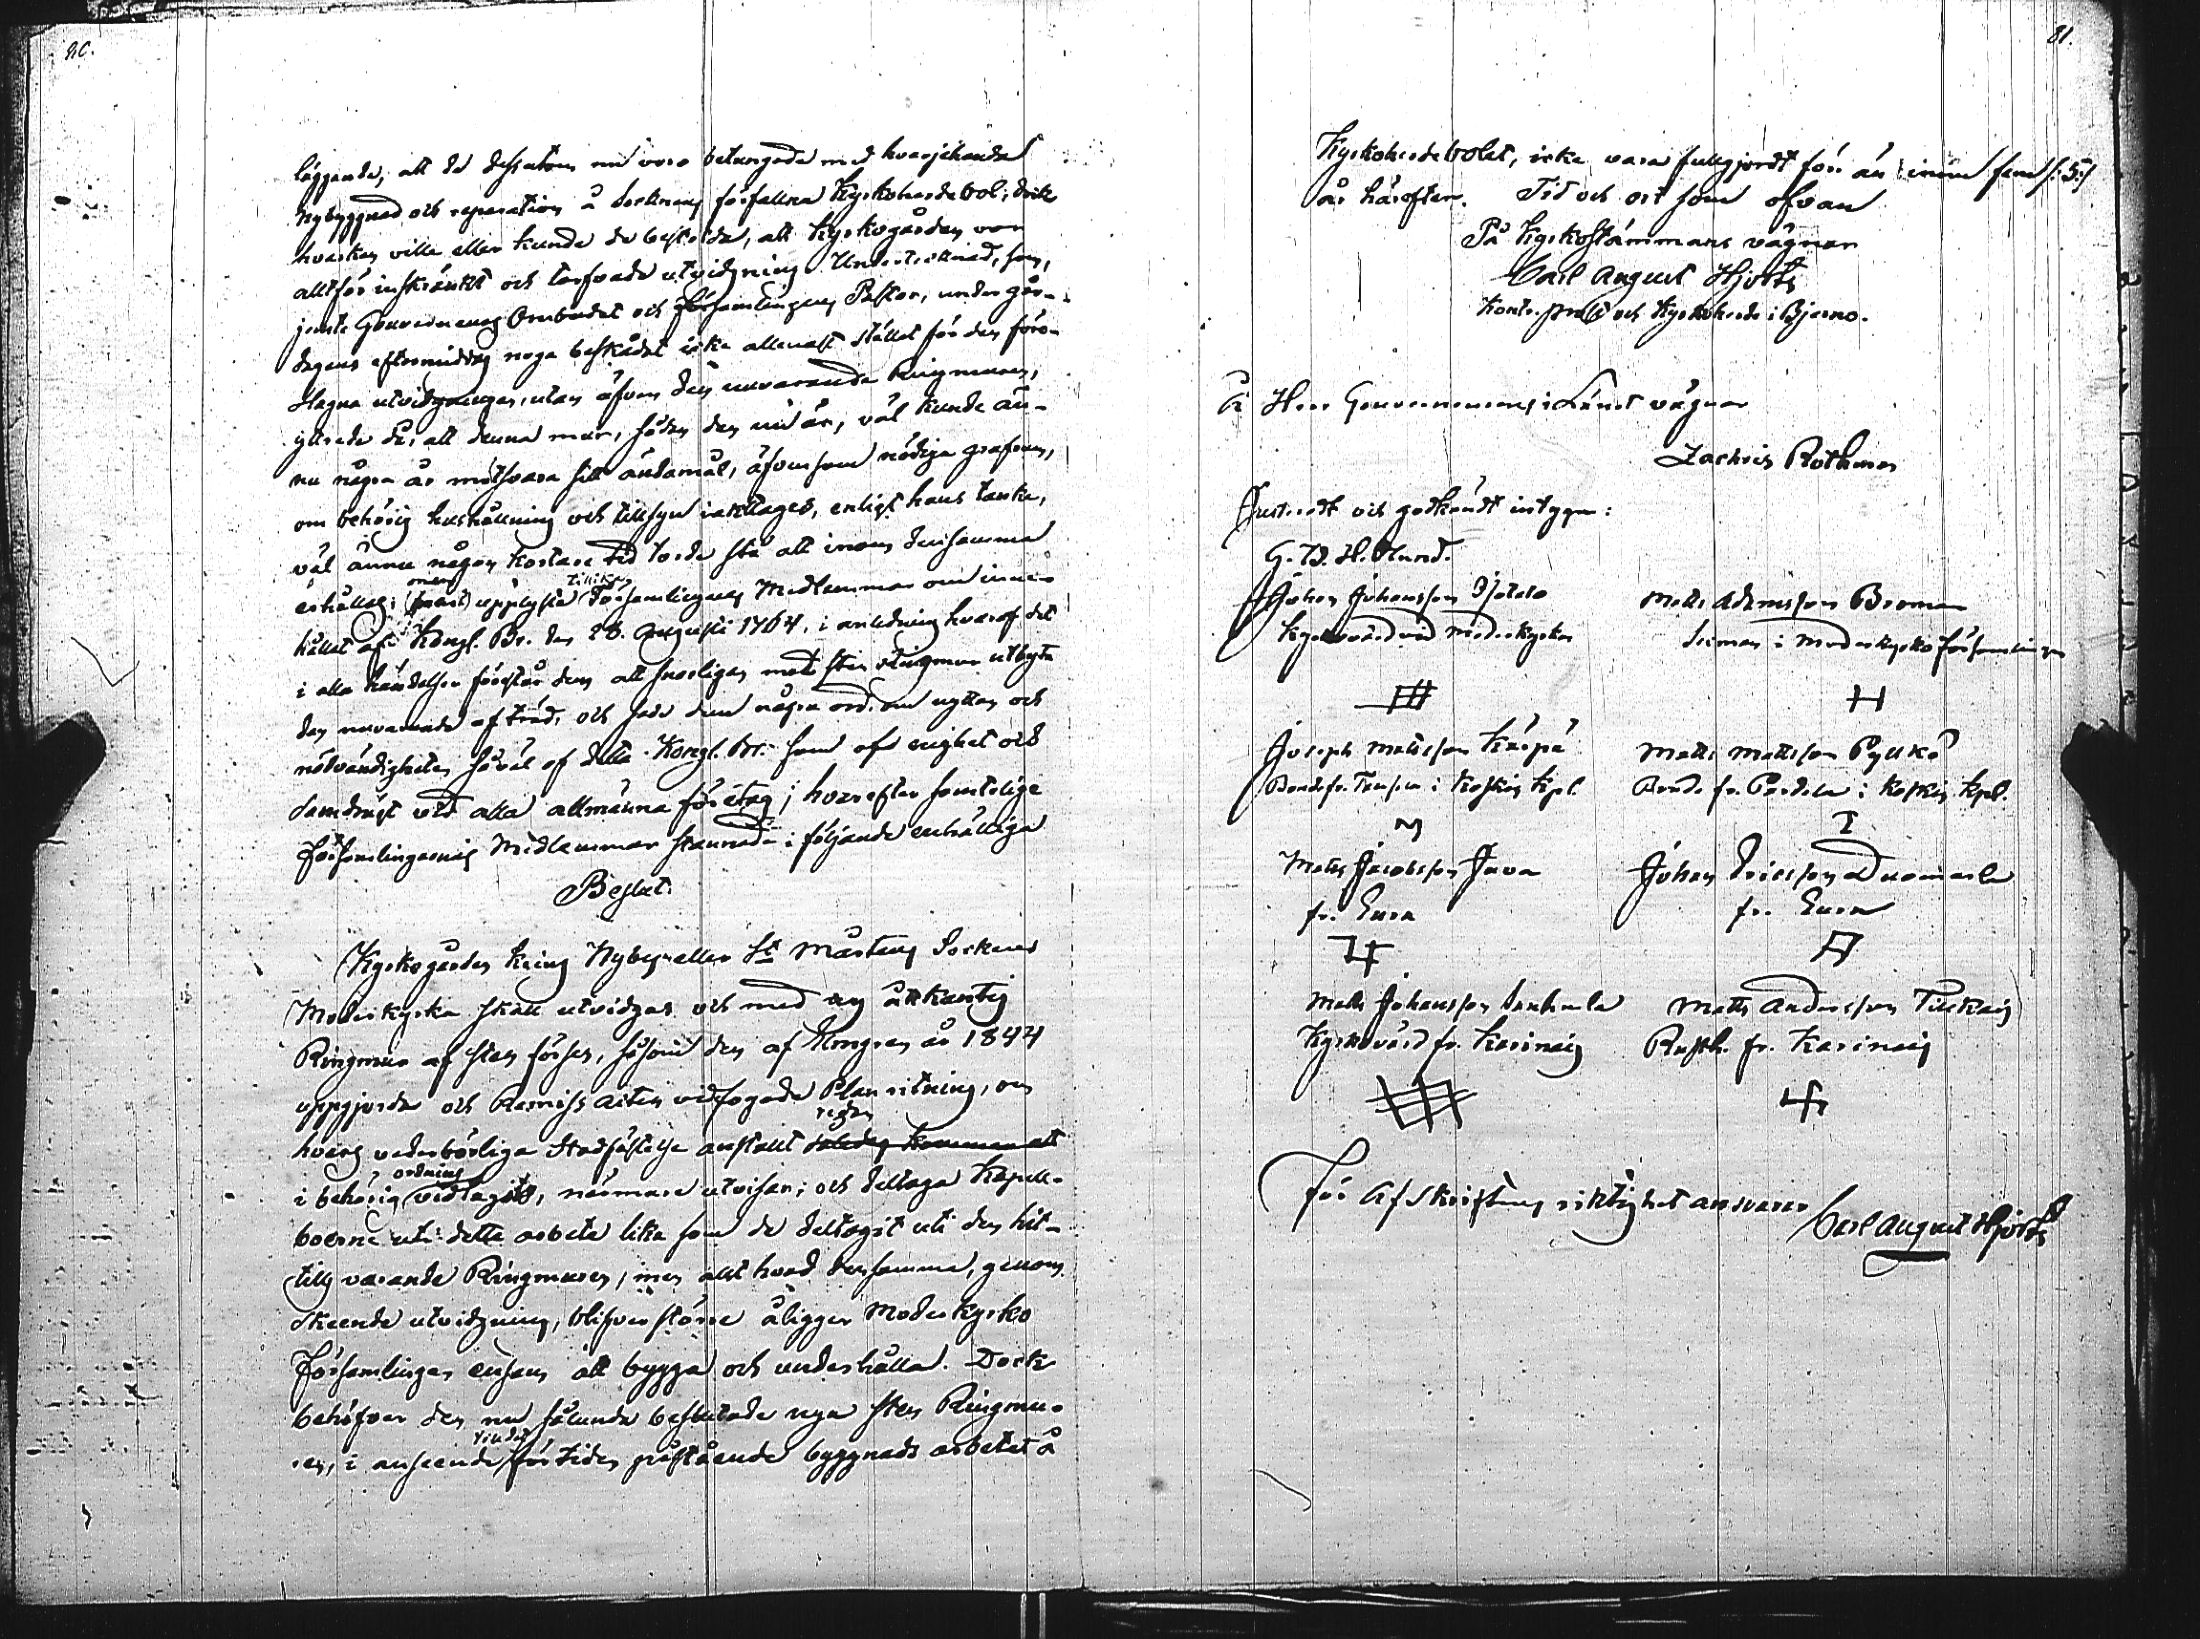 80.
läggande, att de dessutom nu voro betungade med hvarjehanda
Nybyggnad och reparation å Socknens förfallna Kyrkoherdebol; dock
hvarken ville eller kunde de bestrida, att Kyrkogården var
alltför inskränkt och torfvade utvidgning. Undertecknad, som,
jemte Gouverneurs Ombudet och Församlingens Pastor, under går-
dagens eftermiddag noga beskådat icke allenast stället för den före-
slagna utvidgningen, utan äfven den nuvarande Ringmuren,
yttrade då, att denna mur, sådan den nu är, väl kunde än-
nu några år motsvara sitt ändamål, äfvensom nödiga grafrum,
om behörig hushållning och tillsyn iakttages, enligt hans tanke,
väl ännu någon kortare tid torde stå att inom densamma
erhållas; men upplyste tillika Församlingens Medlemmar om inne-
hållet af Kongl. Br. den 28. Augusti 1764, i anledning hvaraf det
i alla händelser förestår dem att snarligen mot sten Ringmur utbyta
den nuvarande af träd, och sade dem några ord om nyttan och
nötvändigheten såväl af detta Kongl. Br. som af enighet och
samdrägt vid alla allmänna företag; hvarefter samtelige
Församlingarnas Medlemmar stannade i följande enhälliga
Beslut:
Kyrkogården kring Nyby eller St Mårtens Sockens
Moderkyrka skall utvidgas och med en åttkantig
Ringmur af sten förses, såsom den af Kongren år 1844
uppgjorda och Remiss Acten vidfogade Plan ritning, om
hvars vederbörliga Stadfästelse anstallt redan således kommer att
i behörig ordning vidtagits, närmare utvisar; och deltaga Kapell-
boerne uti detta arbete lika som de deltagit uti den hit-
tills varande Ringmuren, men allt hvad densamma, genom
skeende utvidgning, blifver större åligger Moderkyrko
Församlingen ensam att bygga och underhålla. Dock
behöfver den nu sålunda beslutade nya sten Ringmu-
ren, i anseende till det för tiden påstående byggnads arbetet å
81.
Kyrkoherdebolet, icke vara fullgjordt förr än inom fem /: 5 :/
år härefter. Tid och ort som ofvan
På Kyrkostämmans vägnar
Carl August Hjorth
Kontr. prost och Kyrkoherde i Bjerno.
På Herr Gouverneurens i Länet vägnar
Zachris Rothman
Justeradt och godkändt intyga:
G. W. H. Elund.
Johan Johansson Isotalo
Kyrkovärd vid Moderkyrkan
Matts Adamsson Broman
Sexman i Moderkyrko församlingen
Joseph Mattsson Käpä
Bonde fr. Tansila i Koskis Kpl.
Matts Mattsson Pyukö
Bonde fr. Partela i Koskis Kpl.
Matts Jacobsson Juva
fr. Eura
Johan Ericsson Duomarla
fr. Eura
Matts Johansson Sankala
Kyrkovärd fr. Karinais
Matts Andersson Pilckäis
Rusth. fr. Karinais
För Afskriftens riktighet ansvarar
Carl August Hjorth